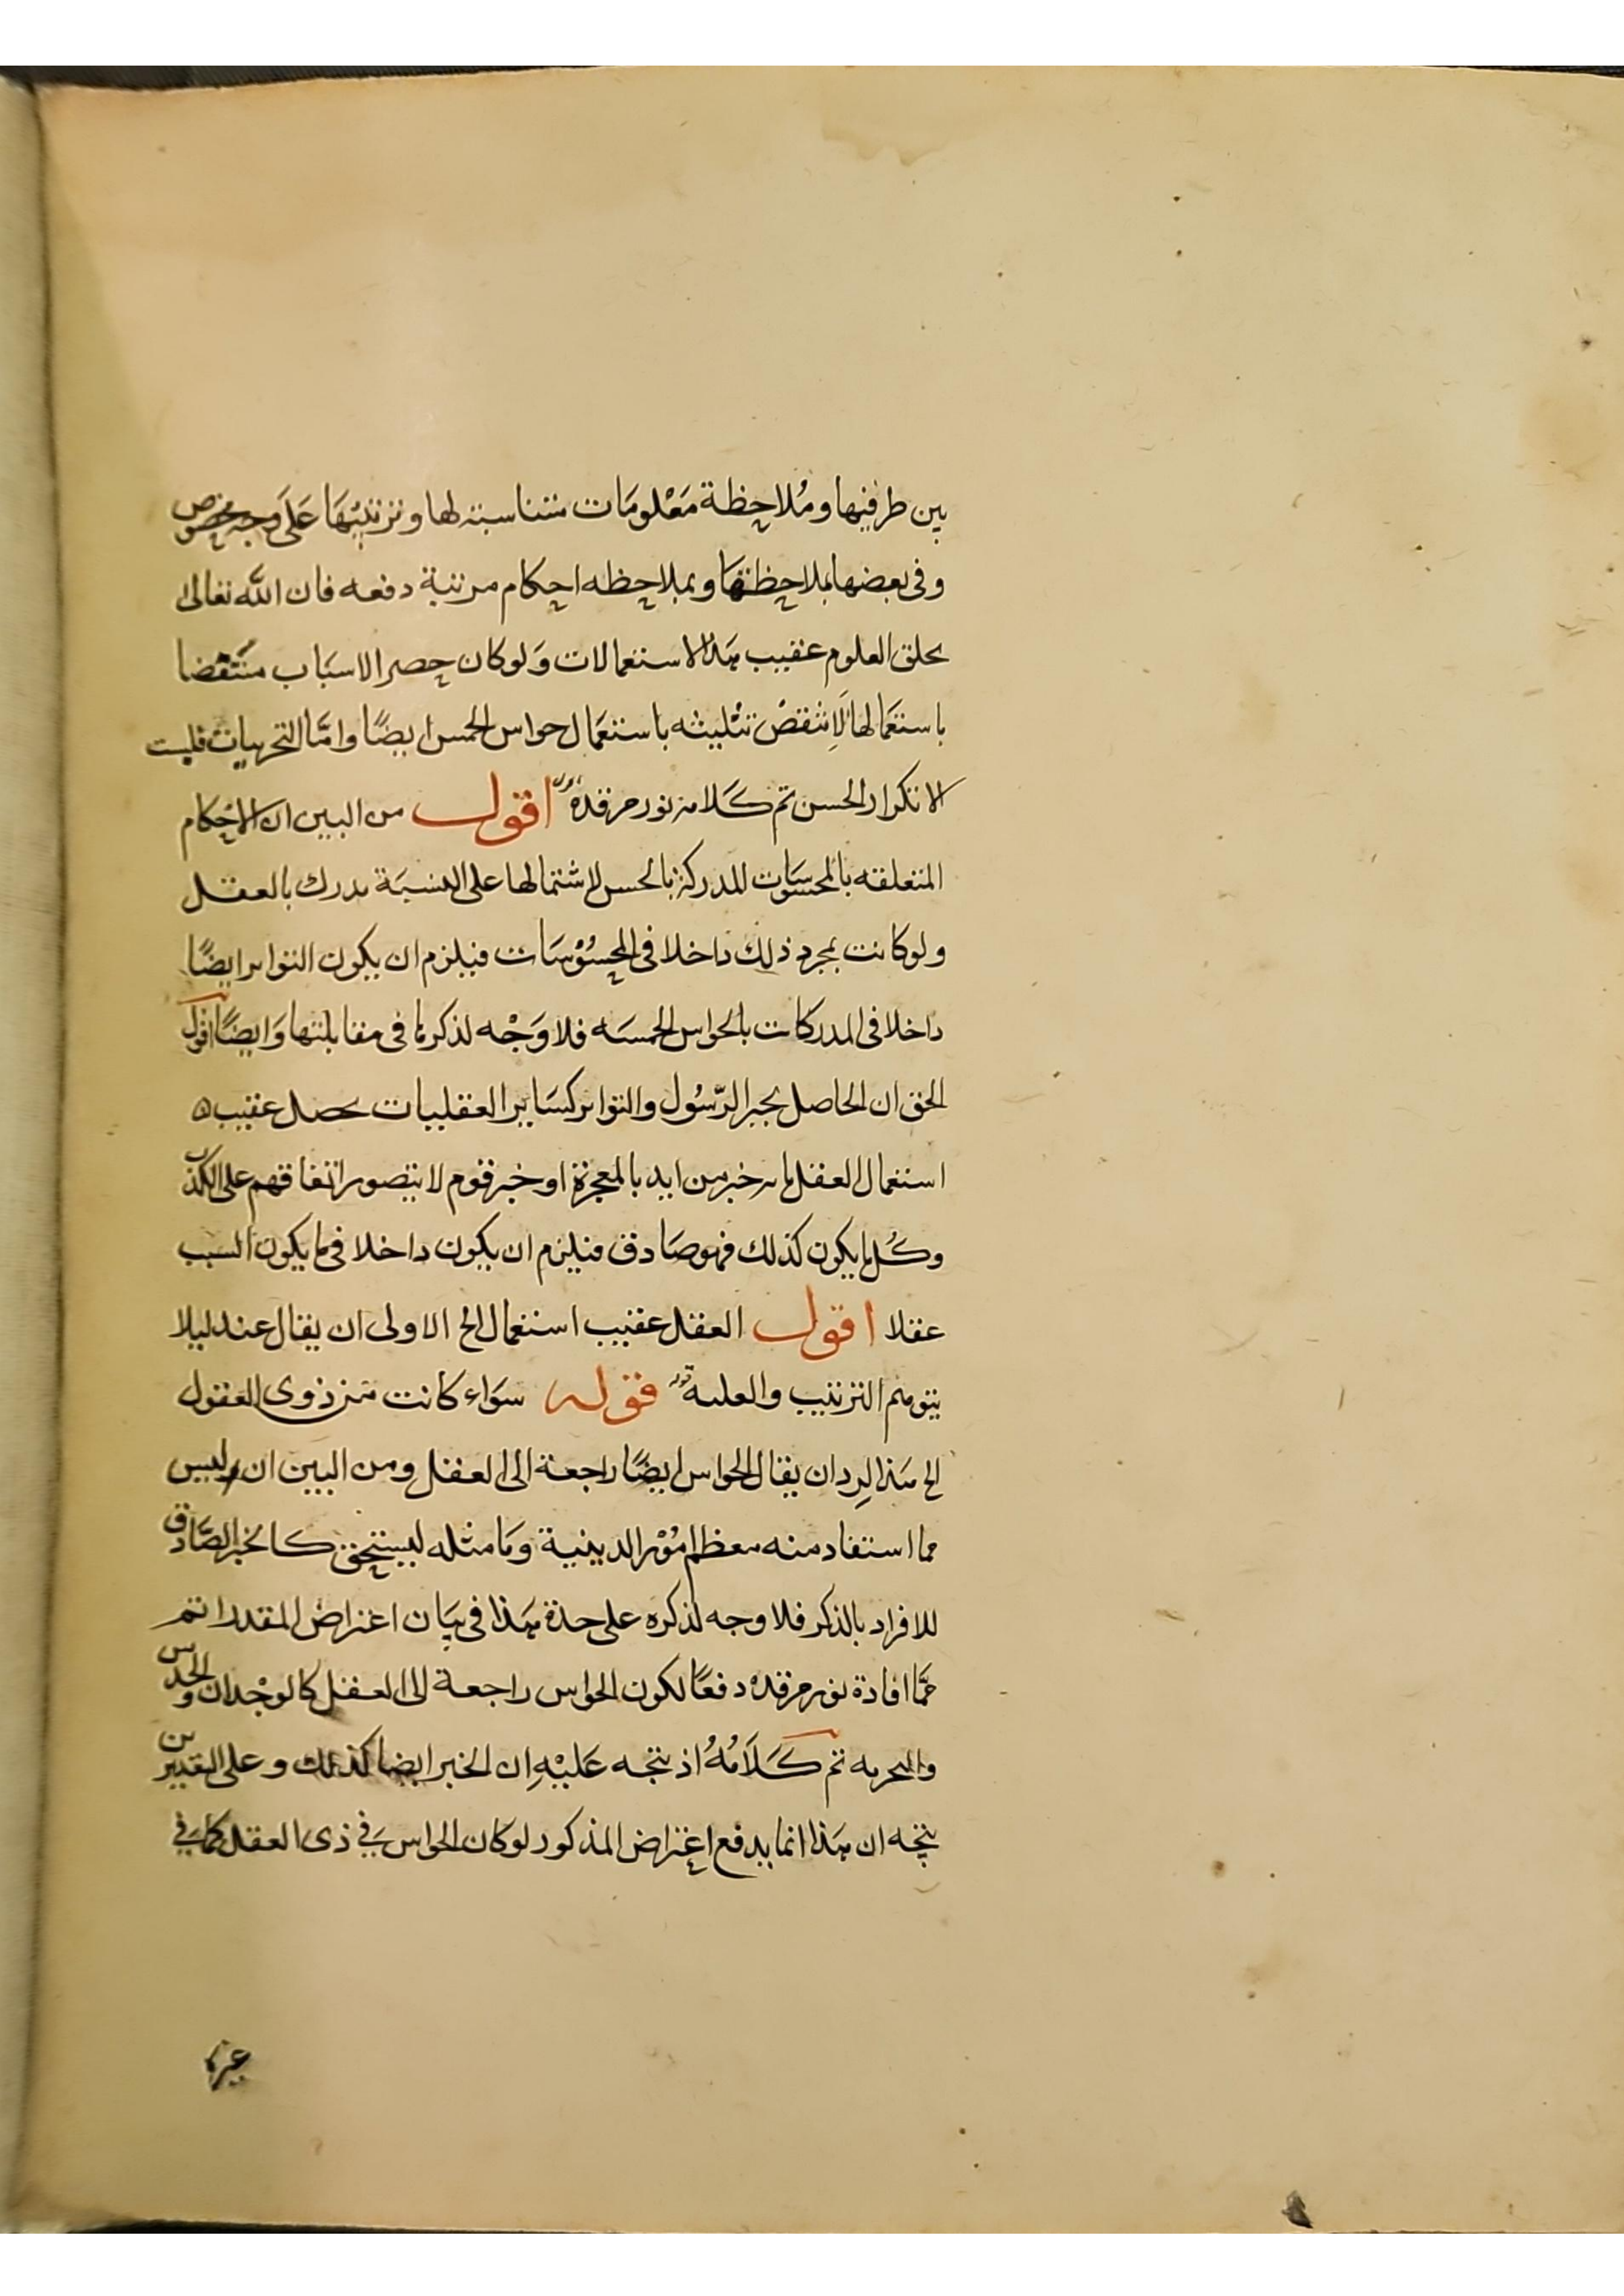 بين طرفيها ومُلاحظة مَعْلومَات متناسبة لها وترتيبهَا عَلَى وجه مخصوص
وفى بعضها بملاحظتها وبملاحظه احكام مرتبة دفعه فان الله تعالى
يخلق العلوم عقيب هذا الاستعمالات وَلوكان حصر الاسبَاب منتقضا
باستعمَالها لَانتقضْ تثْليثه باستعمَال حواس الخمس ايضًا وامَّا التجربيات فليست
الا تكرار الحسن تم كَلامه نور مرقده اقول من البين ان الاحكام
المتعلقه بالمحسوسَات المدركة بالحس لاشتمالها على النسبَة يدرك بالعقل
ولوكانت بمجرد ذلك داخلا فى المحسُوْسَات فيلزم ان يكون التواتر ايضًا
داخلا فى المدركات بالحواس الخمسَه فلا وَجْه لذكرها فى مقابلتها وَايضًا اقول
الحق ان الحاصل بخبر الرّسُول والتواتر كسَاير العقليات يحصل عقيب
استعمال العقل بانه خبر من ايد بالمعجزة او خبر قوم لا يتصور اتفاقهم على الكذب
وكُل ما يكون كذلك فهو صَادق فيلزم ان يكون داخلا فيما يكون السبب
عقلا اقول العقل عقيب استعمال الخ الاولى ان يقال عند ليلا
يتوهم الترتيب والعليه قوله سوَاء كانت من ذوى العقول
الخ هَذا لِرد ان يقال الحواس ايضًا راجعة الى العقل ومن البين ان ليس
مما استفاد منه معظم امُوْر الدينية وَمَا مثله ليستحق كالخبر الصَّادق
للافراد بالذكر فلا وجه لذكره على حدة هَذا فى بيَان اعتراض المقدر اتم
عمَّا افادة نور مرقده دفعًا لكون الحواس راجعة الى العقل كالوجْدان والحدس
والتجربه تم كَلَامُهُ اذ يتجه عَليْهِ ان الخبر ايضا كذلك وعلى التقديرين
يتجه ان هَذا انما يدفع اعتراض المذكور لوكان الحواس فى ذى العقل كما فى
غيره